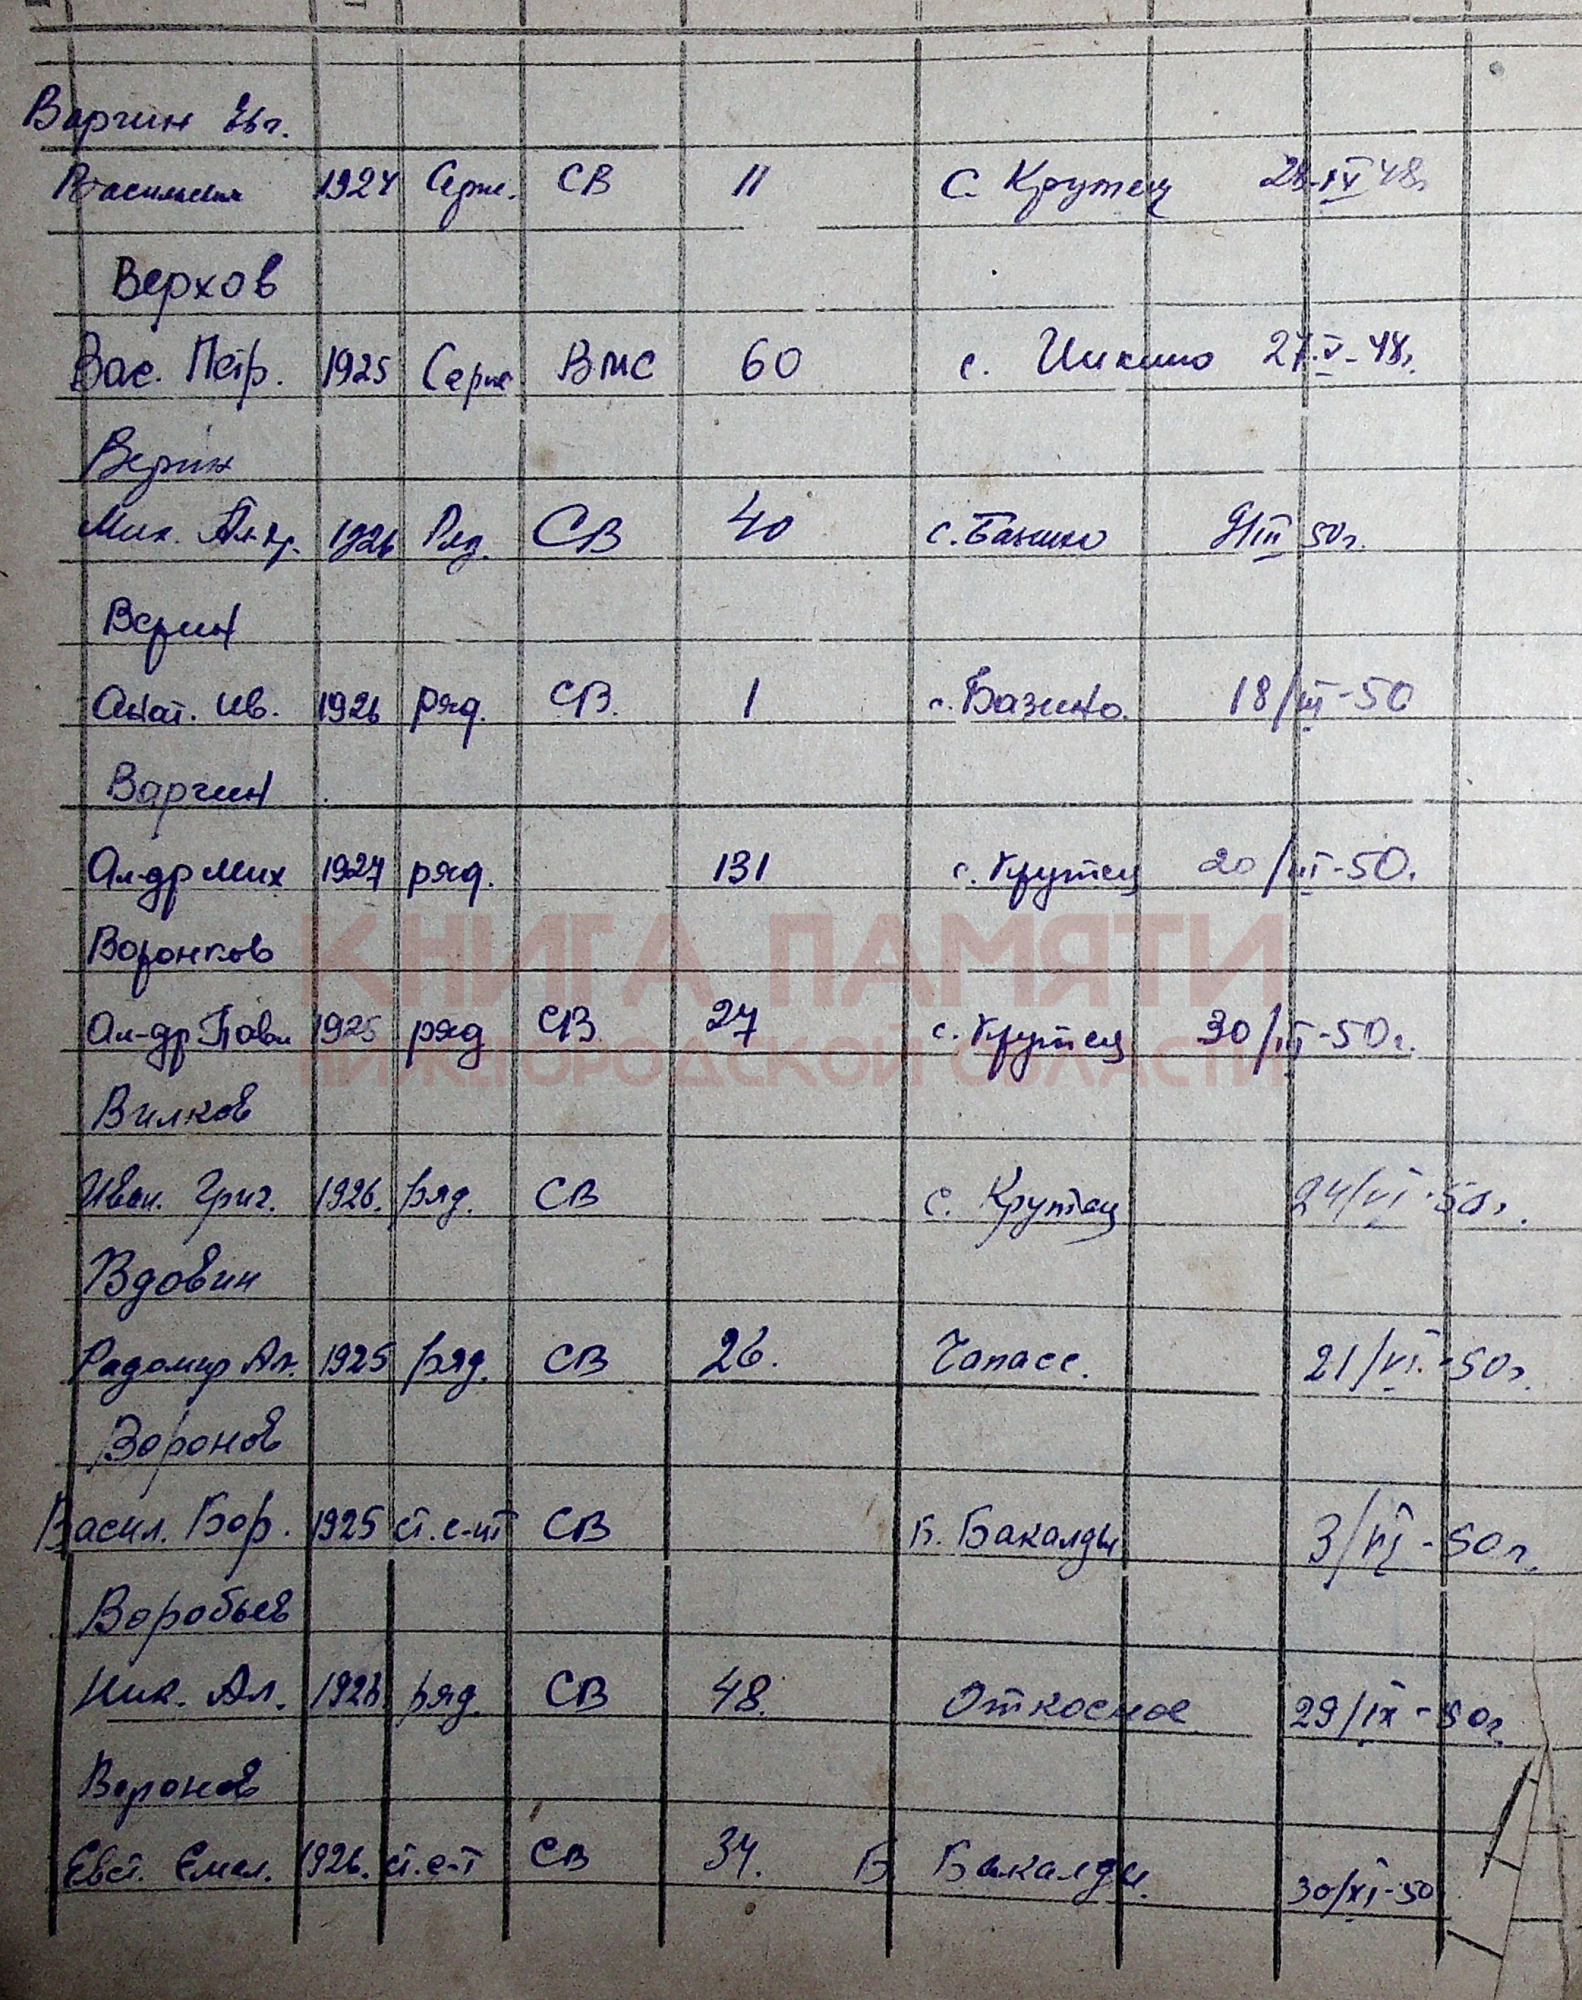 Варгин Евг.
Васильевич 1924 Серж. СВ 11 с. Крутец 28-IX 48г
Верхов
Вас. Петр. 1925 Серж ВМС 60 с. 27.V-48г.
Верин
Мих. Ал-др. 1926 Ряд. СВ 40 с. Базино 9/III 50г.
Верин
Анат. Ив. 1926 ряд. СВ. 1 с. Базино. 18/III-50
Варгин
Ал-др Мих 1927 ряд. 131 с. Крутец 20/III-50.
Воронков
Ал-др Павл 1925 ряд СВ. 27 с. Крутец 30/III-50г.
КНИГА ПАМЯТИ
НИЖЕГОРОДСКОЙ ОБЛАСТИ
Вилков
Иван. Григ. 1926. ряд. СВ с. Крутец 24/VI-50г.
Вдовин
Радомир Ал. 1925 ряд. СВ 26. 21/VI.-50г.
Воронов
Васил. Бор. 1925 ст. с-нт СВ Б. Бакалды 3/VI-50г.
Воробьев
Ник. Ал. ряд. СВ 48. Откосное 29/IX-50г.
Воронов
Евст. Емел. 1926. ст. с-т СВ 34. Б Бакалды. 30/XI-50